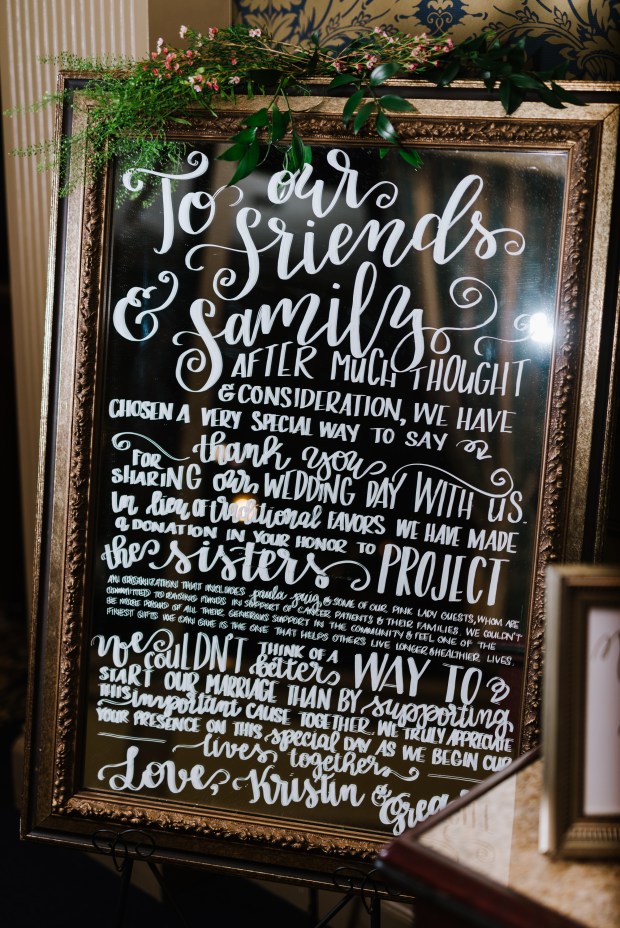 To our
friends
& family
AFTER MUCH THOUGHT
& CONSIDERATION, WE HAVE
CHOSEN A VERY SPECIAL WAY TO SAY
thank you
FOR
SHARING our WEDDING DAY WITH US.
in lieu of traditional FAVORS WE HAVE MADE
a DONATION IN YOUR HONOR TO
the sisters PROJECT
AN ORGANIZATION THAT INCLUDES paula puig & SOME OF OUR PINK LADY GUESTS, WHOM ARE
COMMITTED TO RAISING FUNDS IN SUPPORT OF CANCER PATIENTS & THEIR FAMILIES. WE COULDN'T
BE MORE PROUD OF ALL THEIR GENEROUS SUPPORT IN THE COMMUNITY & FEEL ONE OF THE
FINEST GIFTS WE CAN GIVE IS THE ONE THAT HELPS OTHERS LIVE LONGER & HEALTHIER LIVES.
we COULDN'T THINK OF A
better WAY TO
START OUR MARRIAGE THAN BY supporting
THIS important CAUSE TOGETHER. WE TRULY APPRECIATE
YOUR PRESENCE ON THIS special DAY AS WE BEGIN OUR
lives together.
Love, Kristin &